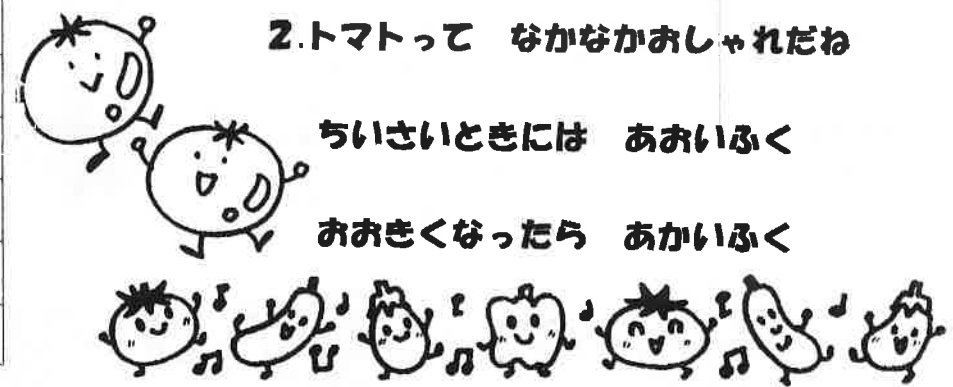 2.トマトって なかなかおしゃれだね
ちいさいときには あおいふく
おおきくなったら あかいふく